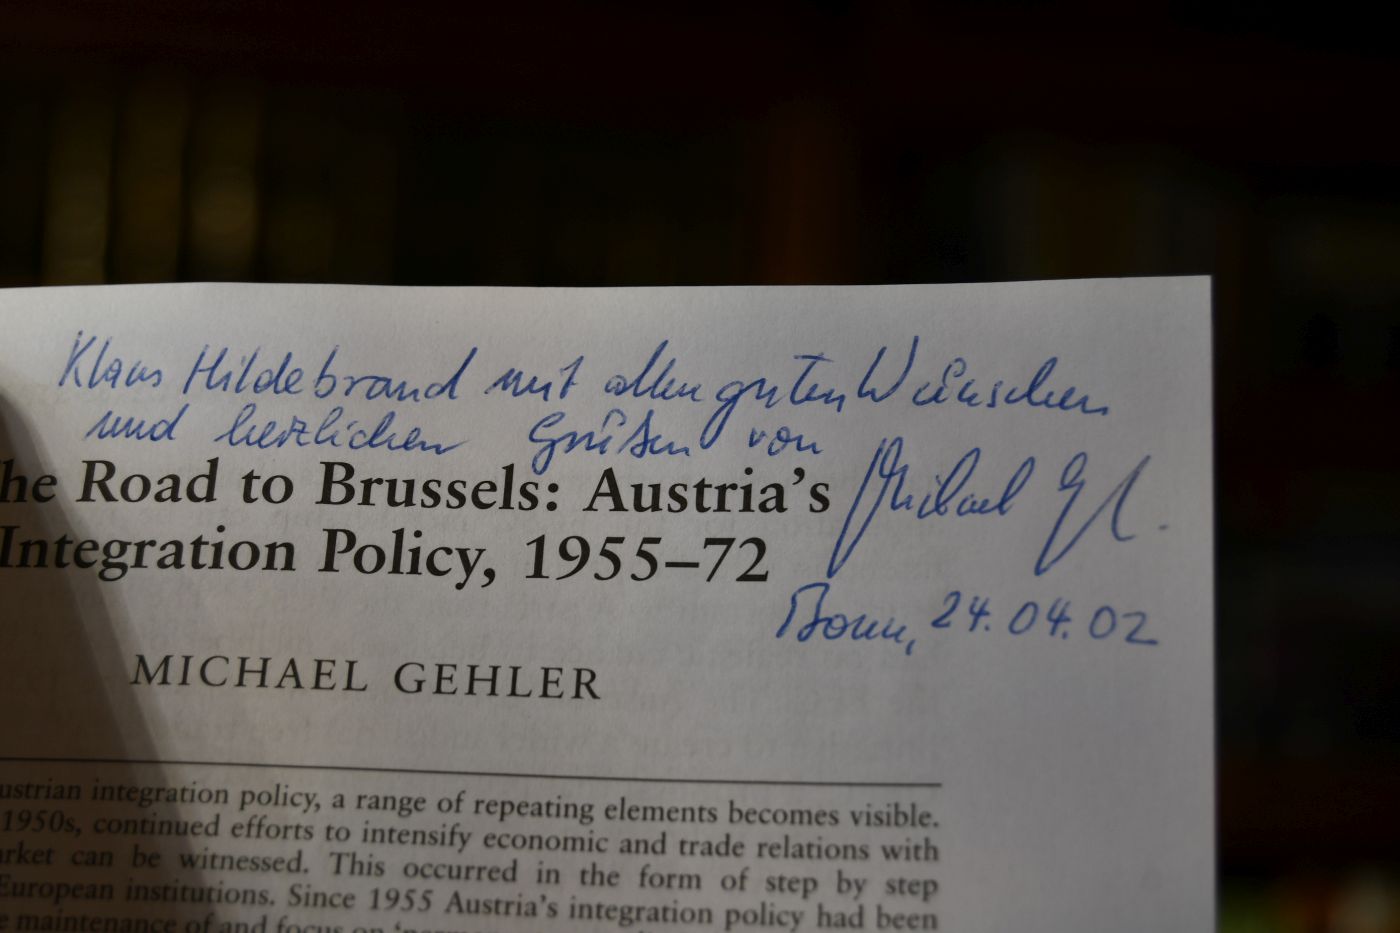 Klaus Hildebrand mit allen guten Wünschen
und herzlichen Grüßen von
he Road to Brussels: Austria's
Michael
Integration Policy, 1955–72
Bonn, 24.04.02
MICHAEL GEHLER
ustrian integration policy, a range of repeating elements becomes visible.
1950s, continued efforts to intensify economic and trade relations with
rket can be witnessed. This occurred in the form of step by step
European institutions. Since 1955 Austria's integration policy had been
e maintenance of and focus on